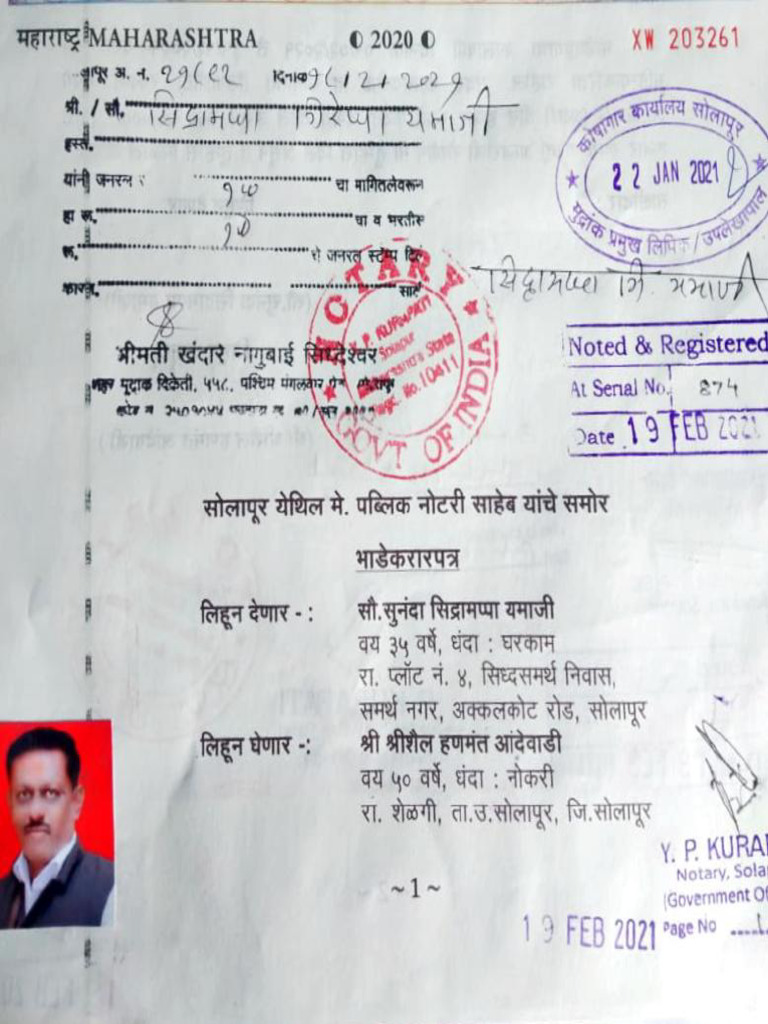 महाराष्ट्र MAHARASHTRA
2020
XW 203261
श्री. / सौ. सिद्रामप्पा गिरेप्पा यमाजी
हस्ते.
यांनी जनरल
१०० चा मागितलेवरून
हा रू. १०० चा व भरतीस
रू. रो जनरल स्टॅम्प दिला
कारण. साठी
श्रीमती खंदारे नागुबाई सिध्देश्वर
कोषागार कार्यालय सोलापूर
22 JAN 2021
मुद्रांक प्रमुख लिपिक / उपलेखापाल
NOTARY
Solapur
Maharashtra State
Regc. No. 10411
GOVT OF INDIA
Noted & Registered
At Serial No. 874
Date 19 FEB 2021
सोलापूर येथिल मे. पब्लिक नोटरी साहेब यांचे समोर
भाडेकरारपत्र
लिहून देणार - : सौ.सुनंदा सिद्रामप्पा यमाजी
वय ३५ वर्षे, धंदा : घरकाम
रा. प्लॉट नं. ४, सिध्दसमर्थ निवास,
समर्थ नगर, अक्कलकोट रोड, सोलापूर
लिहून घेणार -: श्री श्रीशैल हणमंत आंदेवाडी
वय ५० वर्षे, धंदा : नोकरी
रा. शेळगी, ता.उ.सोलापूर, जि.सोलापूर
~1~
Y. P. KURA
Notary, Sola
(Government Of
Page No
19 FEB 2021